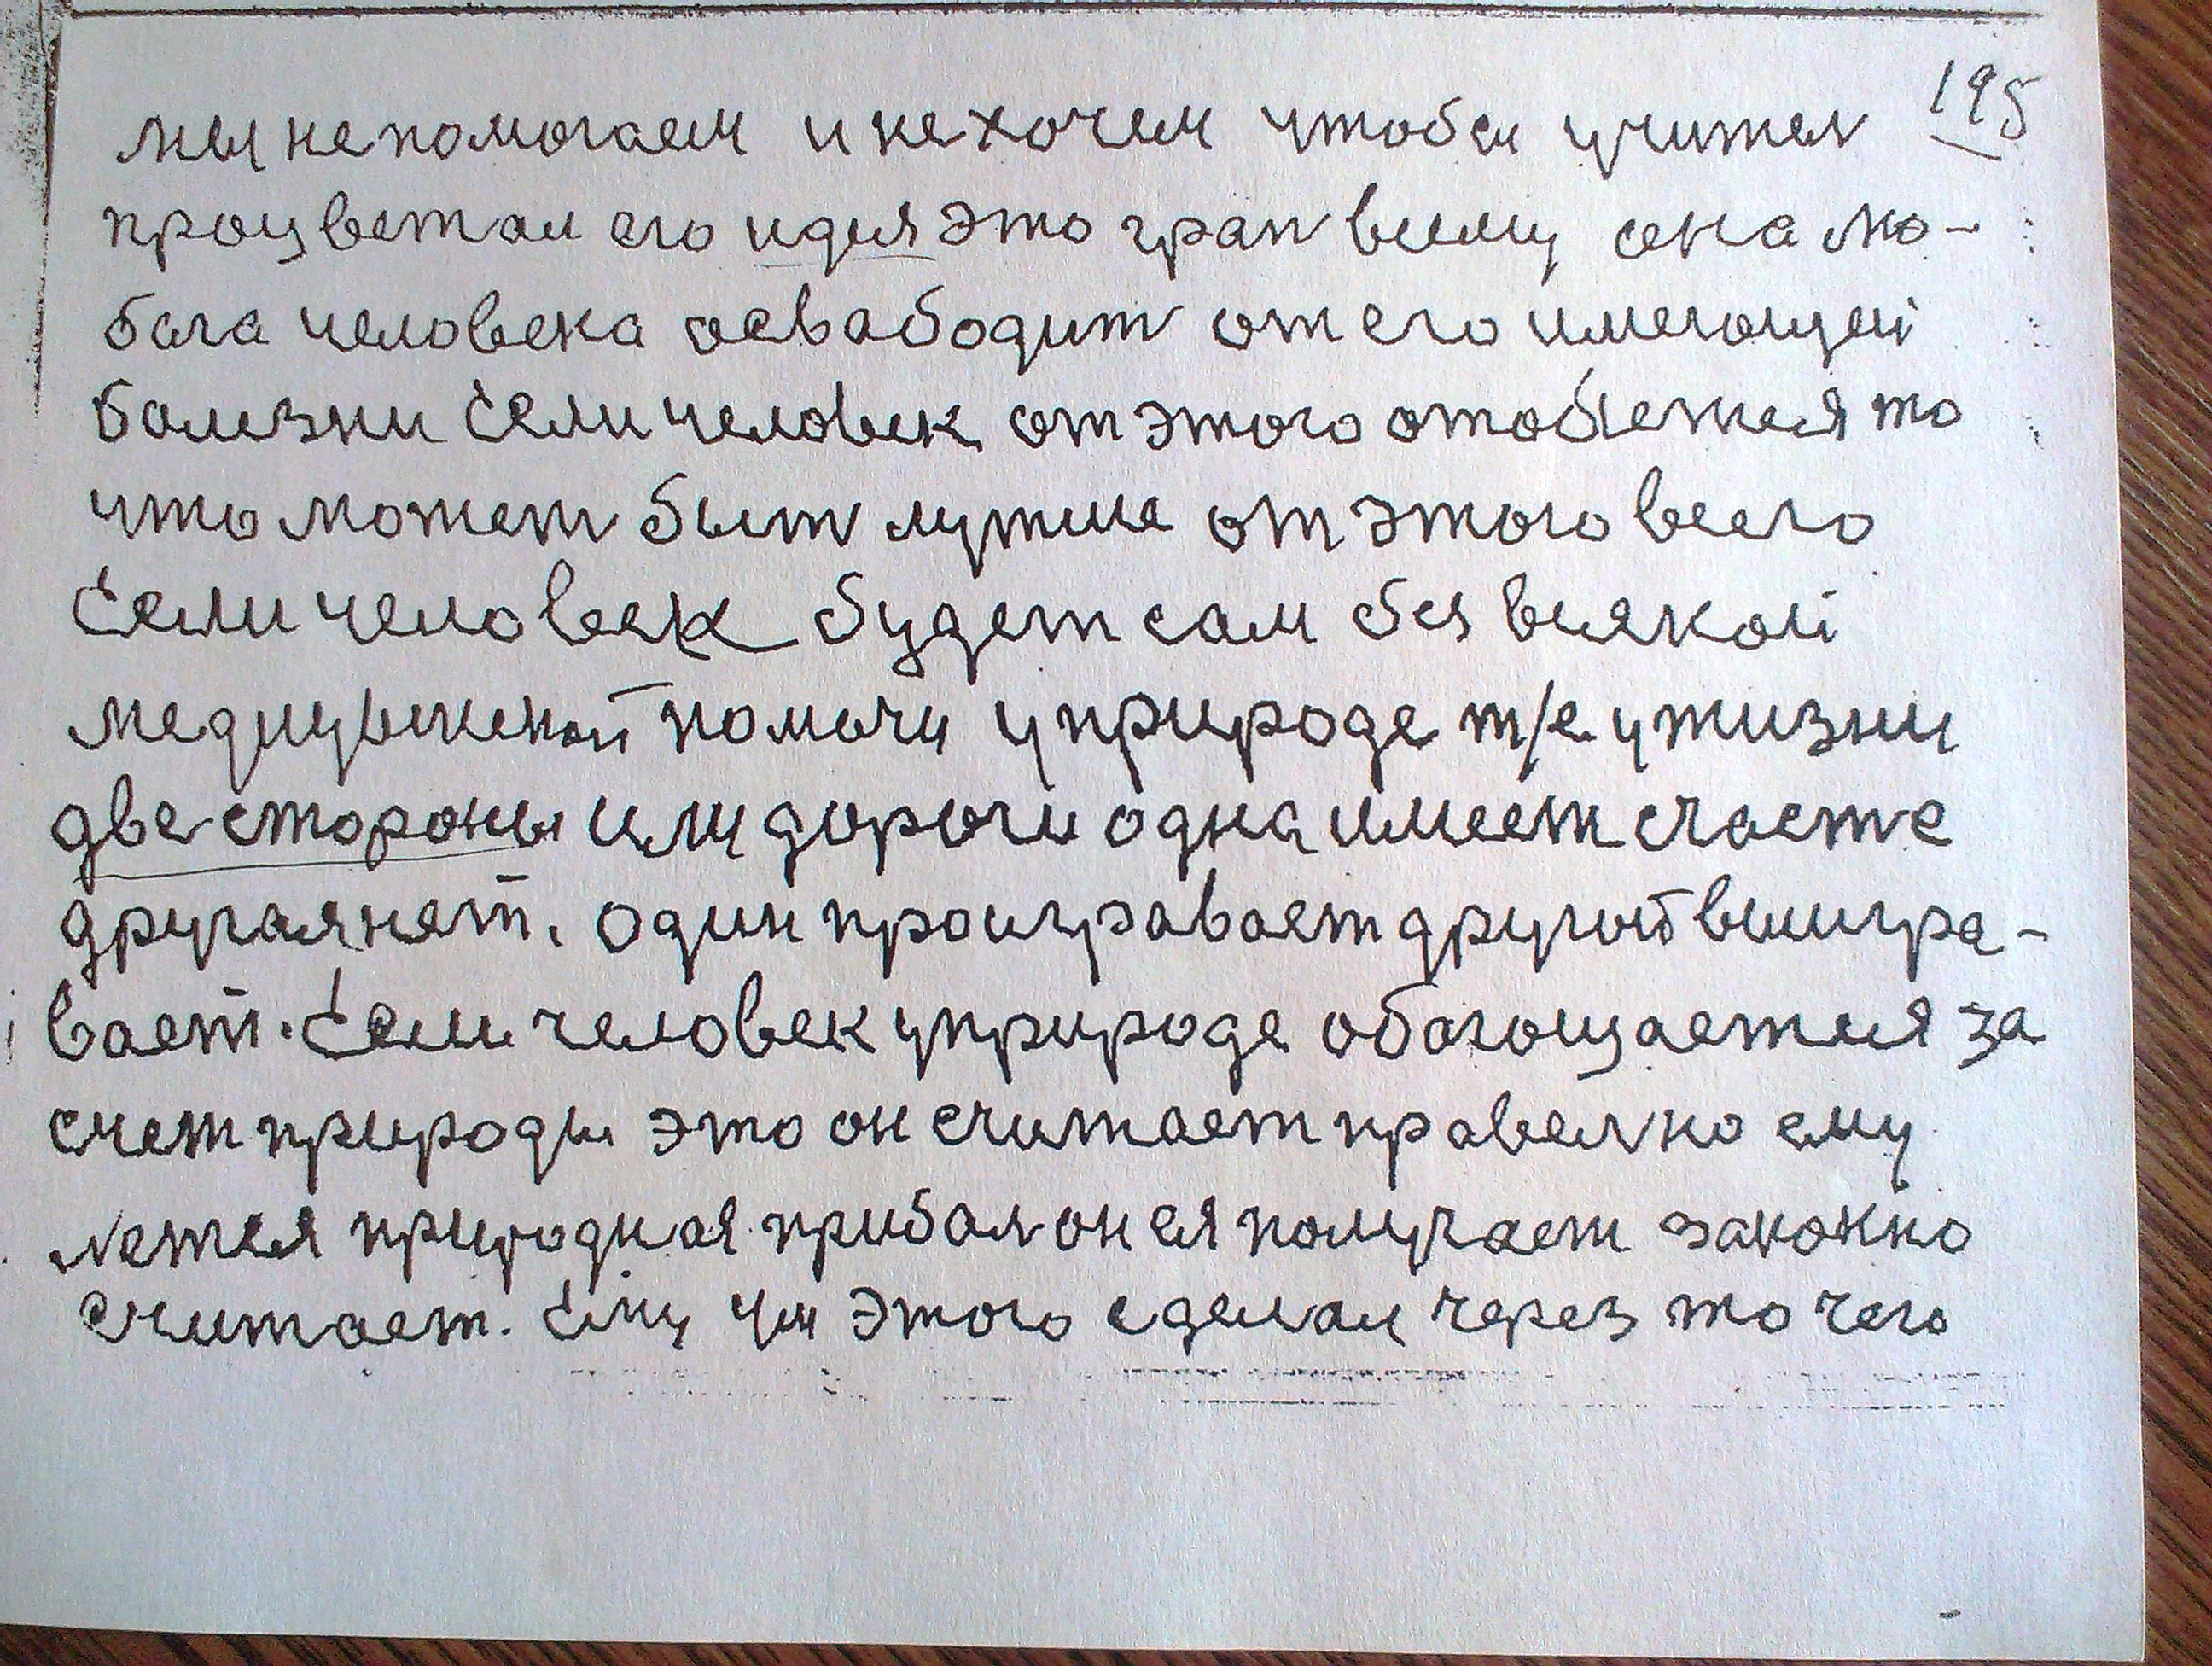 195
мы не помогаем и не хочем чтобы учител
процветал его идея это грап всему она лю-
бога человека освабодит от его имеющей
болезни Если человек от этого отобется то
что может быт лутше от этого всего
Если человек будет сам без всякой
медицынской помочи у природе т/е у жизни
две стороны или дороги одна имеет счасте
другая нет. один проигравает другой выигра-
вает. Если человек у природе обагощается за
счет природы это он считает правелно ему
лется природная прибал он ея получает законно
считает. Ему чи этого сделал через то чего